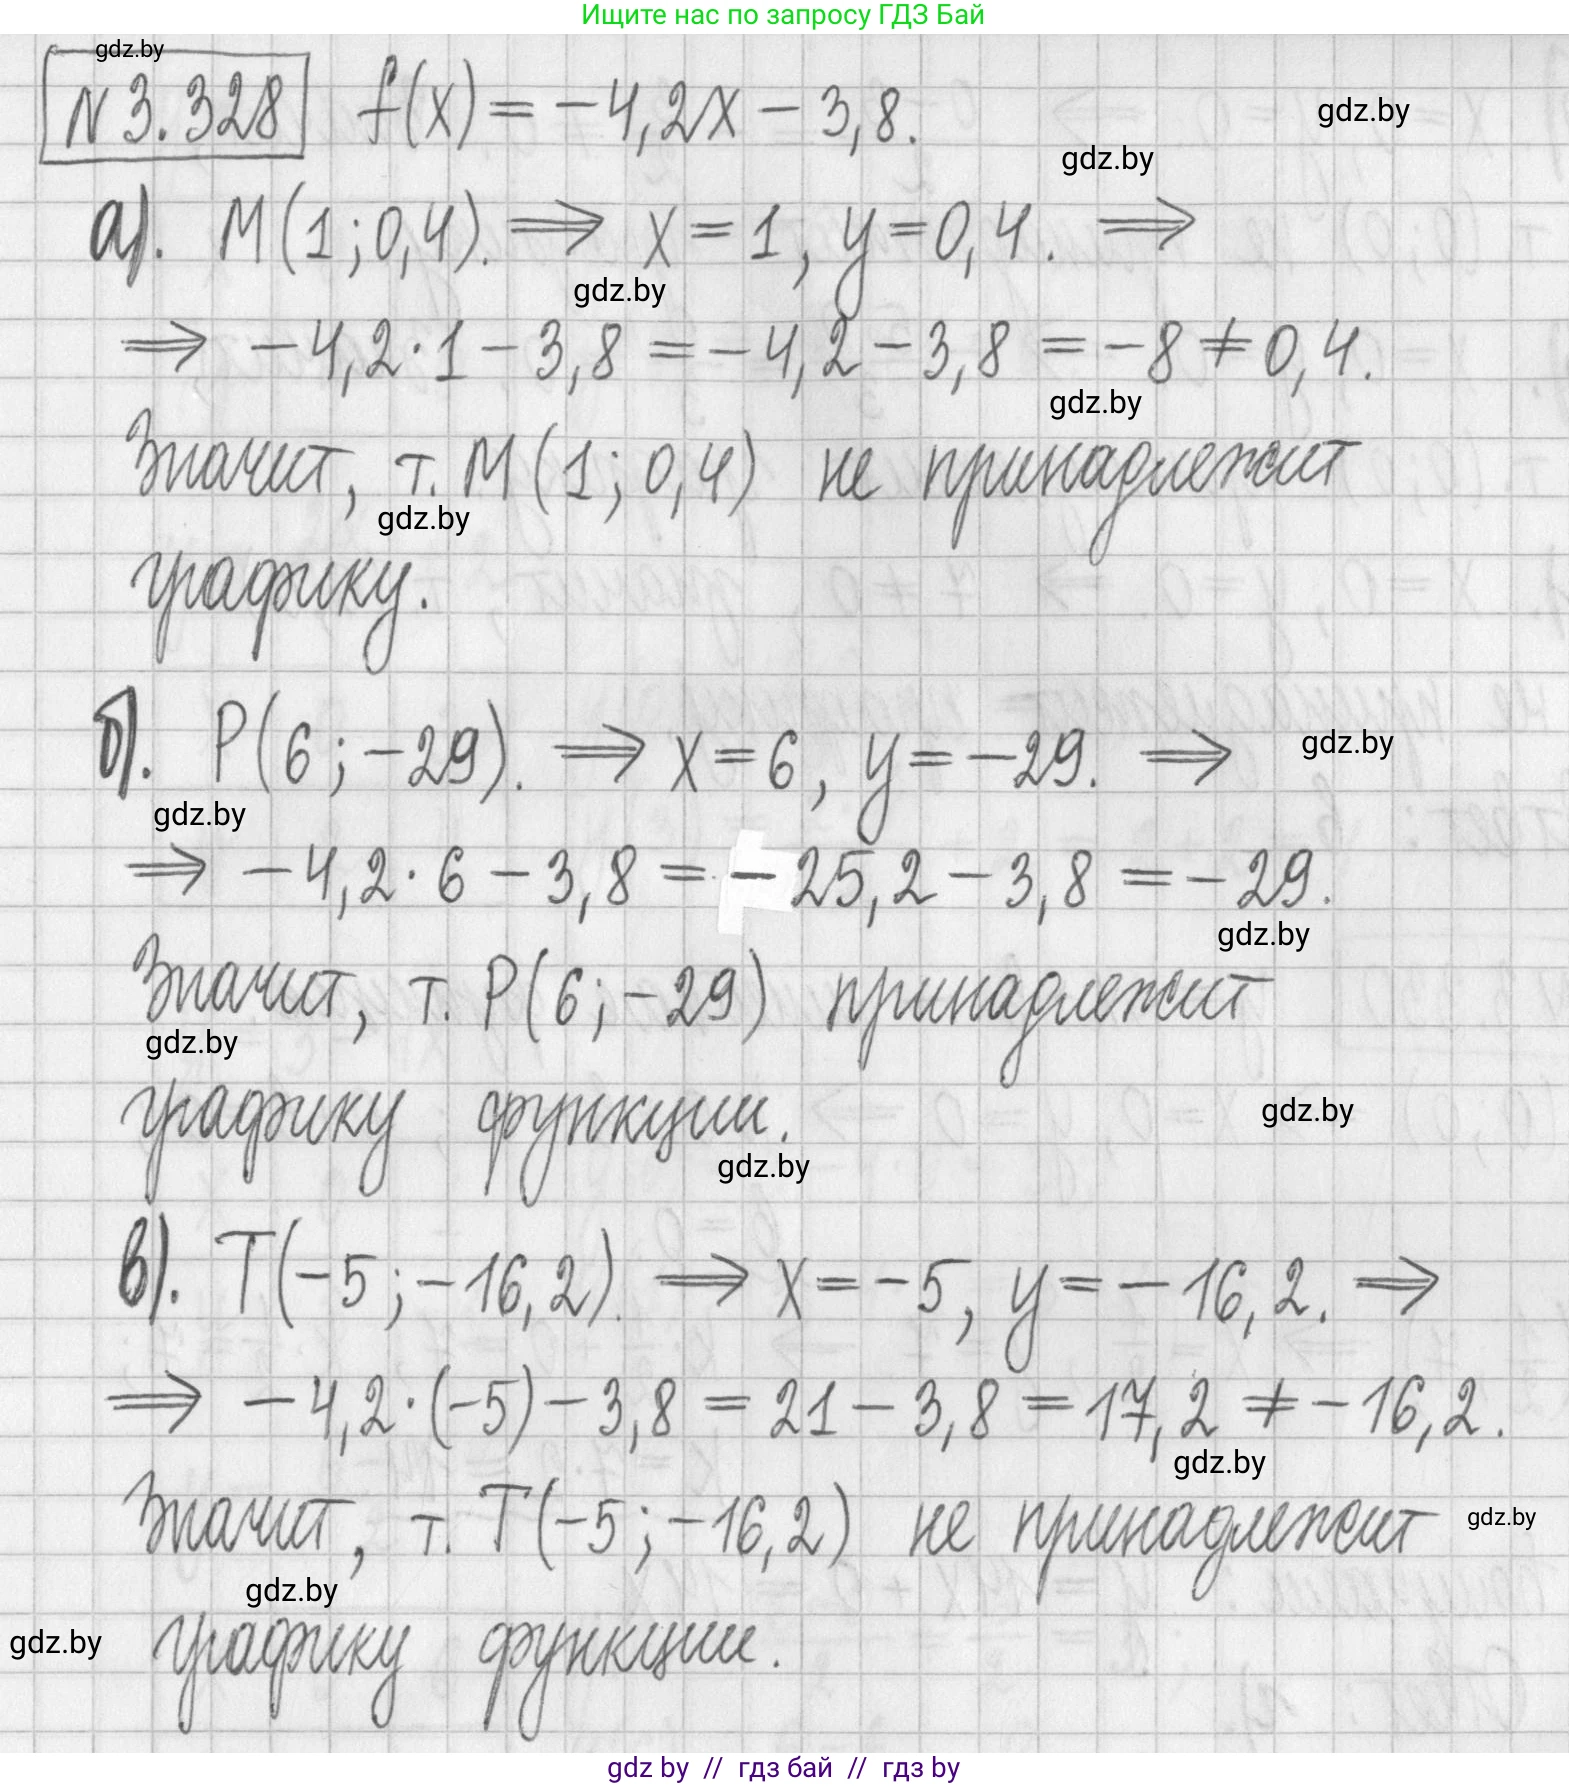 Ищите нас по запросу ГДЗ Бай
gdz.by
N 3.328 f(x) = -4,2x - 3,8.
gdz.by
gdz.by
а). M(1; 0,4). ⟹ x = 1, y = 0,4. ⟹
gdz.by
⟹ -4,2 · 1 - 3,8 = -4,2 - 3,8 = -8 ≠ 0,4.
gdz.by
Значит, т. M(1; 0,4) не принадлежит
gdz.by
графику.
б). P(6; -29). ⟹ x = 6, y = -29. ⟹
gdz.by
gdz.by
⟹ -4,2 · 6 - 3,8 = -25,2 - 3,8 = -29.
gdz.by
Значит, т. P(6; -29) принадлежит
gdz.by
графику функции.
gdz.by
gdz.by
в). T(-5; -16,2). ⟹ x = -5, y = -16,2. ⟹
⟹ -4,2 · (-5) - 3,8 = 21 - 3,8 = 17,2 ≠ -16,2.
gdz.by
Значит, т. T(-5; -16,2) не принадлежит
gdz.by
gdz.by
gdz.by
графику функции.
gdz by // гдз бай // гдз by